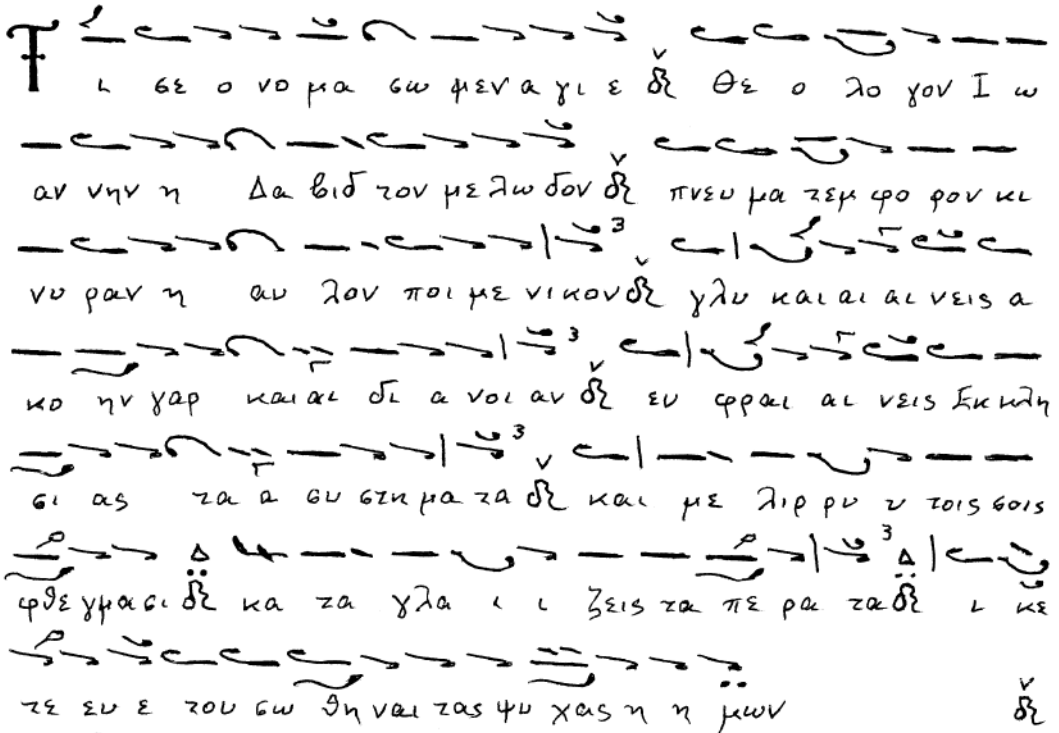 Τ ι σε ο νο μα σω μεν α γι ε δι Θε ο λο γον Ι ω
αν νην η Δα βιδ τον με λω δον δι πνευ μα τεμ φο ρον κι
νυ ραν η αυ λον ποι με νικον δι γλυ και αι αι νεις α
κο ην γαρ και αι δι α νοι αν δι ευ φραι αι νεις Εκ κλη
σι ας τα α συ στη μα τα δι και με λιρ ρυ υ τοις σοις
φθε γμα σι Δ δι κα τα γλα ι ι ζεις τα πε ρα τα Δ δι ι κε
τε ευ ε του σω θη ναι τας ψυ χας η η μων δι